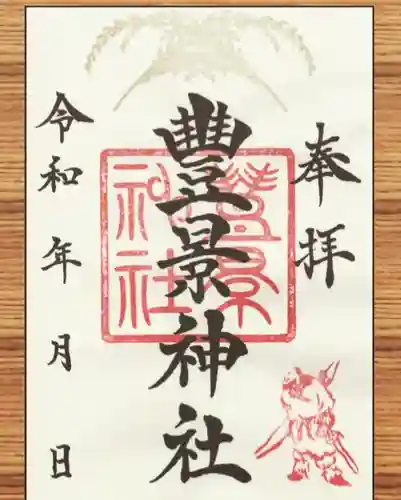 奉拝
豐景神社
豐景
神社
令和 年 月 日